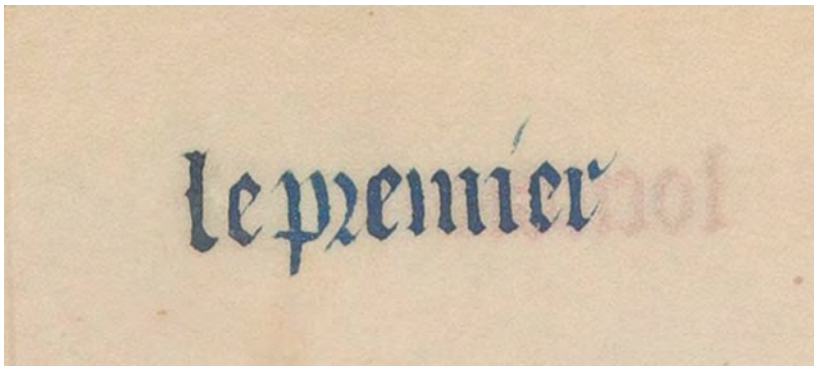 le premier